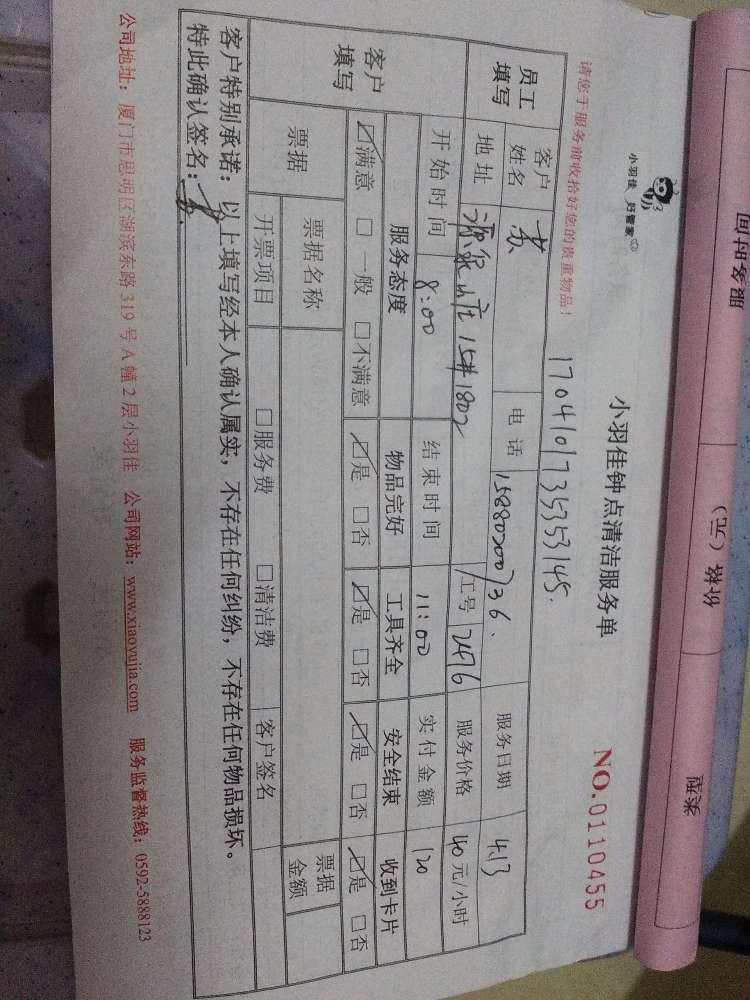 服务时间
价格（元）
类型
小羽佳 好管家
小羽佳钟点清洁服务单
NO.0110455
请您于服务前收拾好您的贵重物品！
员工填写
客户姓名 苏 电话 服务日期 4.13
地址 15#1802 工号 2476 服务价格 40元/小时
开始时间 8:00 结束时间 11:00 实付金额 120
客户填写
服务态度 物品完好 工具齐全 安全结束 收到卡片
☑满意 □一般 □不满意 ☑是 □否 ☑是 □否 ☑是 □否 ☑是 □否
票据 票据名称 票据金额
开票项目 □服务费 □清洁费 客户签名
客户特别承诺：以上填写经本人确认属实，不存在任何纠纷，不存在任何物品损坏。
特此确认签名：
公司地址：厦门市思明区湖滨东路319号A幢2层小羽佳 公司网站：www.xiaoyujia.com 服务监督热线：0592-5888123